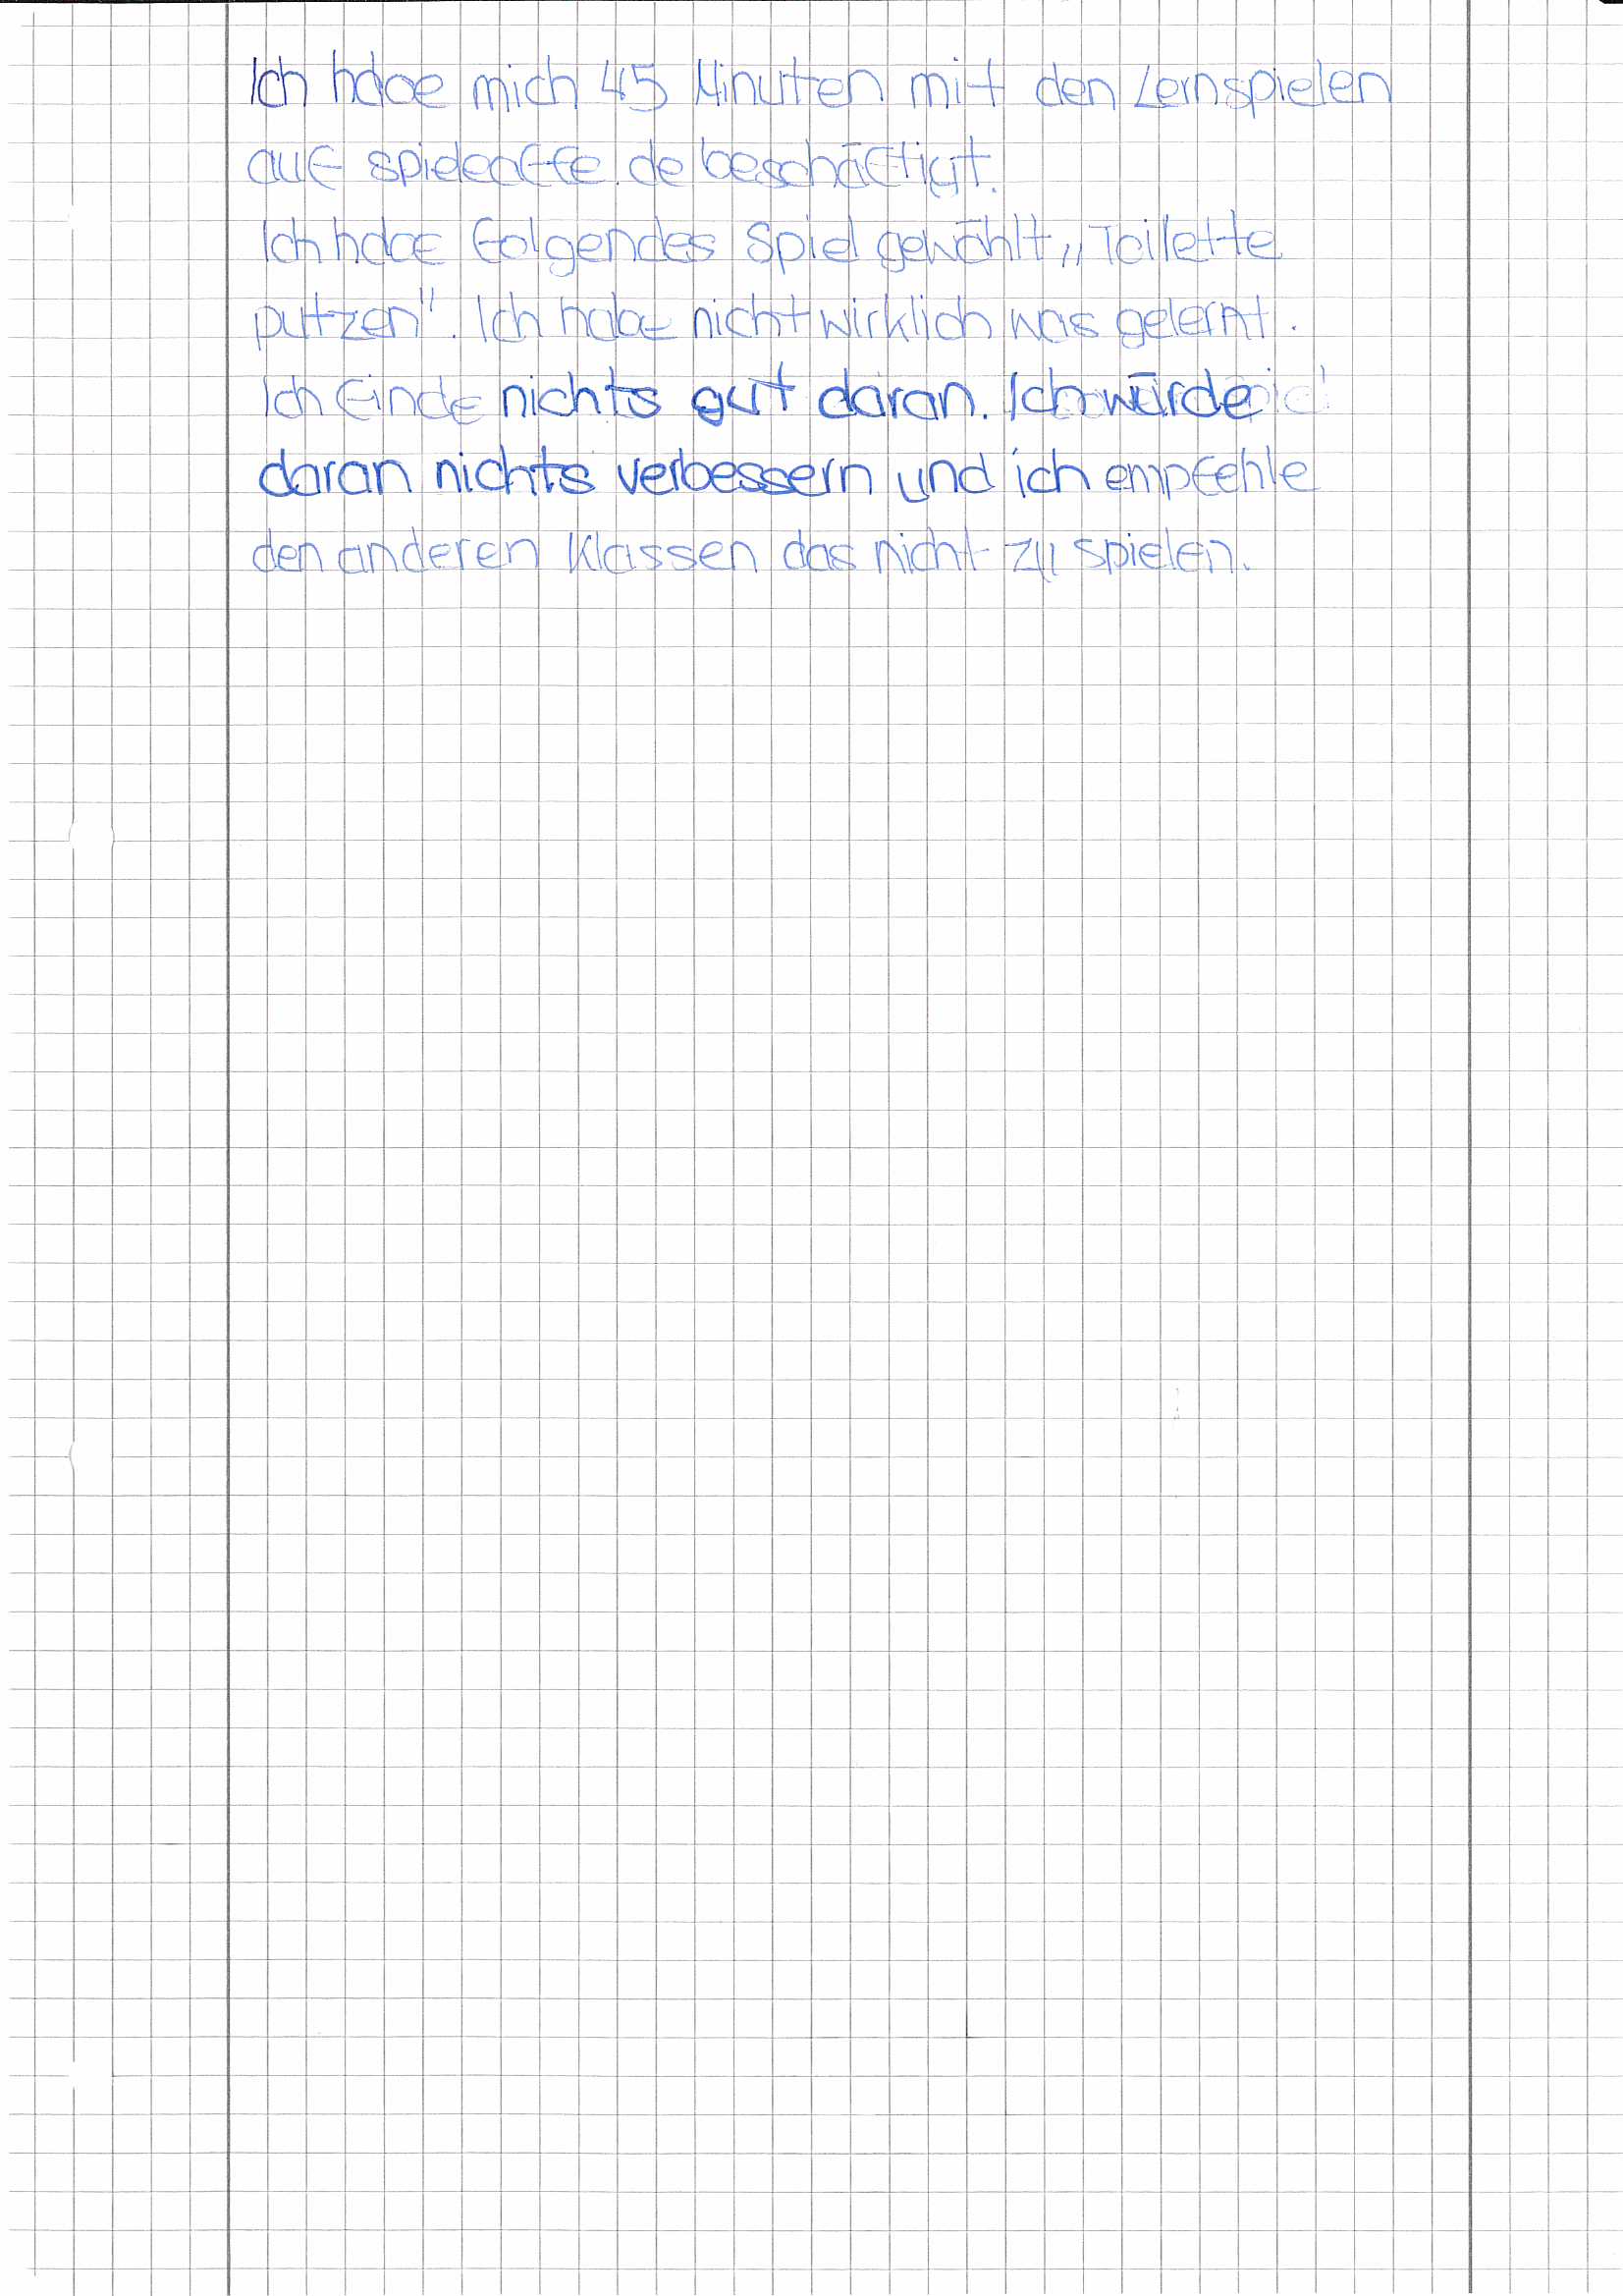 Ich habe mich 45 Minuten mit den Lernspielen
auf spieleaffe.de beschäftigt.
Ich habe folgendes Spiel gewählt „Toilette
putzen". Ich habe nicht wirklich was gelernt.
Ich finde nichts gut daran. Ich würde
daran nichts verbessern und ich empfehle
den anderen Klassen das nicht zu spielen.